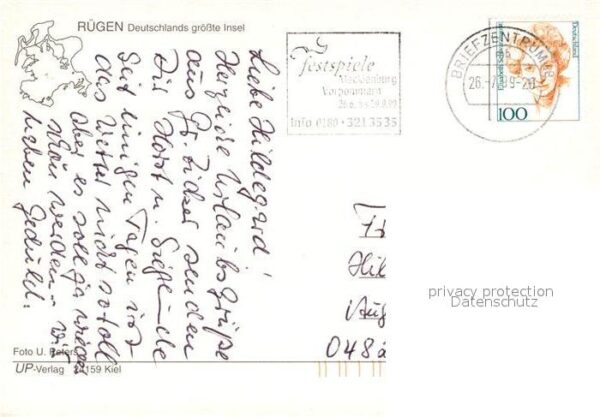 RÜGEN Deutschlands größte Insel
festspiele
Mecklenburg
Vorpommern
26.6. bis 29.8.99
Info 0180 · 3213535
BRIEFZENTRUM 18
26.-7.99-20
Deutschland
100
Liebe Hildegrid!
Herzliche Urlaubsgrüße
aus Gr. Zicker senden
Dir Horst u. Sieglinde
Seit einigen Tagen ist
das Wetter nicht so toll
aber es soll ja wieder
schön werden. Wir
haben Geduld.
Hil
048
privacy protection
Datenschutz
Foto U. Peters
UP-Verlag 24159 Kiel